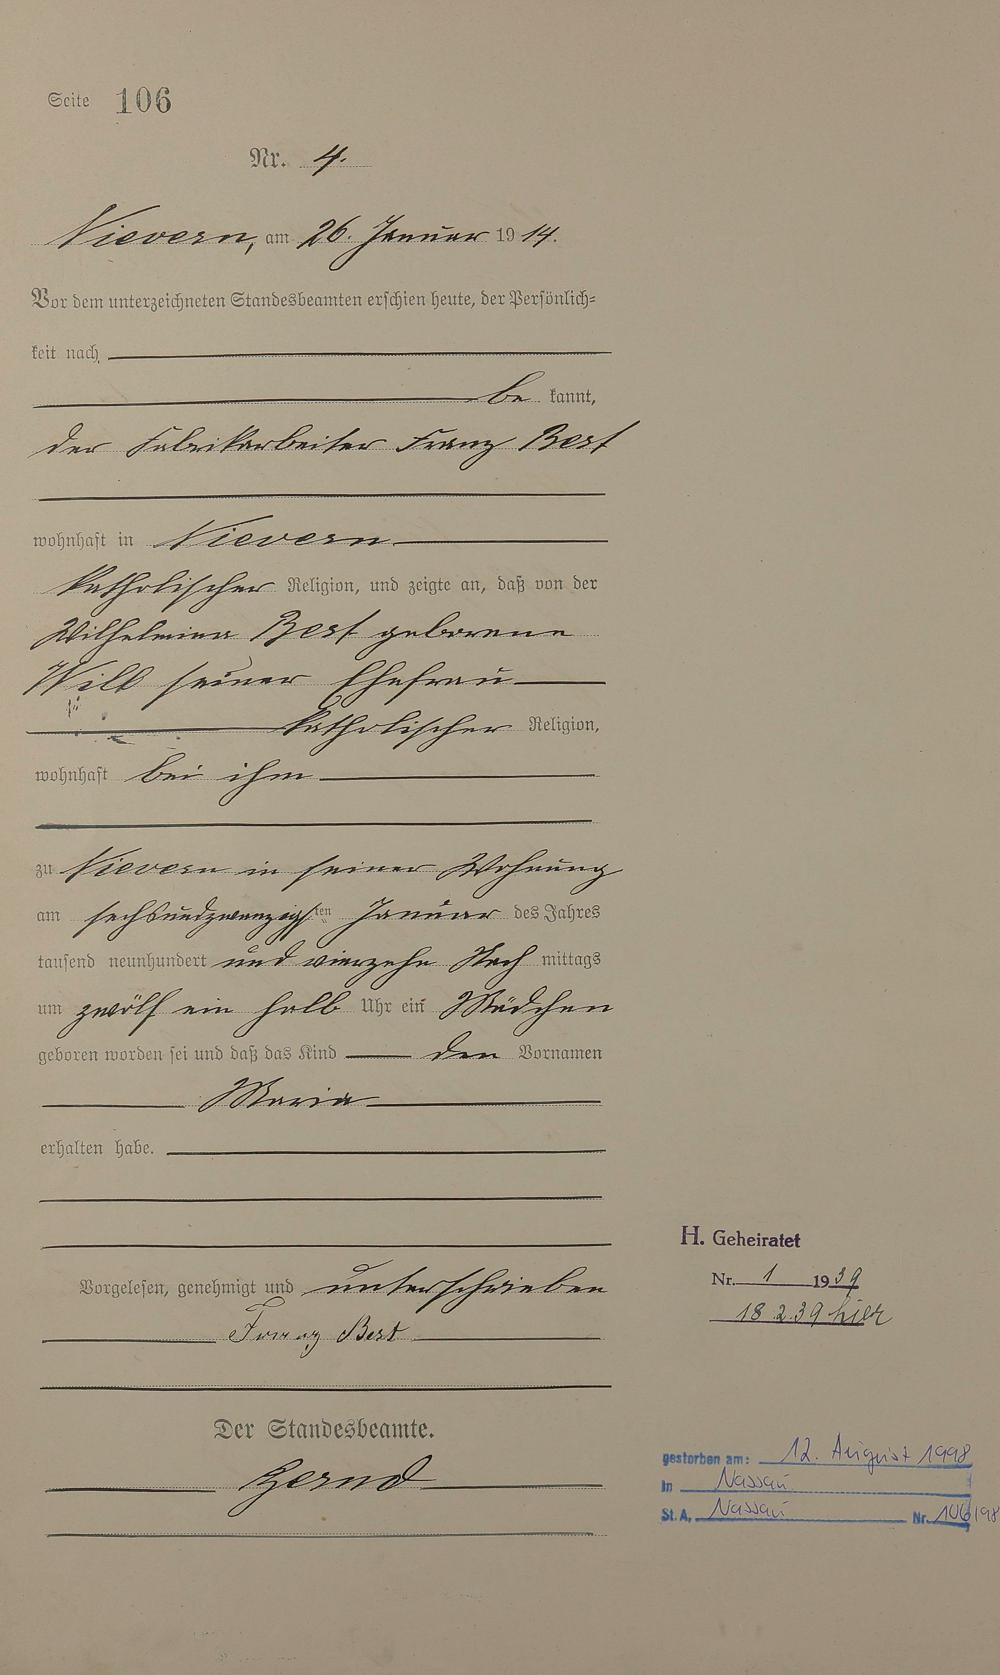 Seite 106
Nr. 4.
Nievern, am 26. Januar 1914.
Vor dem unterzeichneten Standesbeamten erschien heute, der Persönlich=
keit nach
be kannt,
der Fabrikarbeiter Franz Best
wohnhaft in Nievern
katholischer Religion, und zeigte an, daß von der
Wilhelmina Best geborene
Will seiner Ehefrau
katholischer Religion,
wohnhaft bei ihm
zu Nievern in seiner Wohnung
am sechsundzwanzigsten Januar des Jahres
tausend neunhundert und vierzehn Nach mittags
um zwölf ein halb Uhr ein Mädchen
geboren worden sei und daß das Kind den Vornamen
Maria
erhalten habe.
Vorgelesen, genehmigt und unterschrieben
Franz Best
Der Standesbeamte.
H. Geheiratet
Nr. 1 1939
18.2.39 hier
gestorben am: 12. August 1998
in Nassau
St.A. Nassau Nr. 106/98